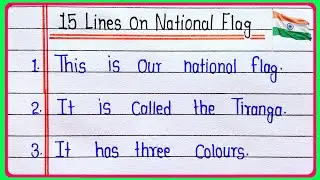 15 Lines On National Flag
1. This is Our national flag.
2. It is Called the Tiranga.
3. It has three Colours.